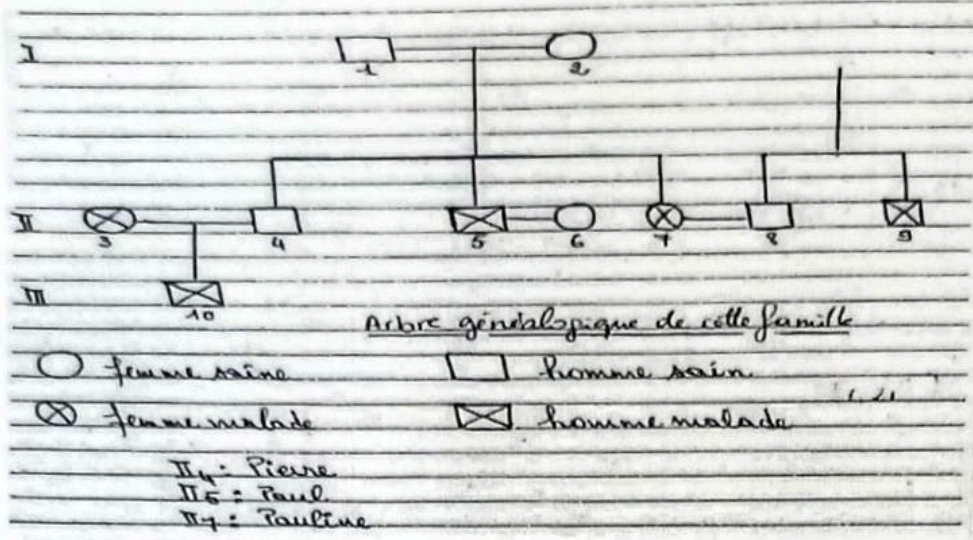 I
1 2
II
3 4 5 6 7 8 9
III
10
Arbre généalogique de cette famille
femme saine homme sain
femme malade homme malade
II4 : Pierre
II5 : Paul
II7 : Pauline